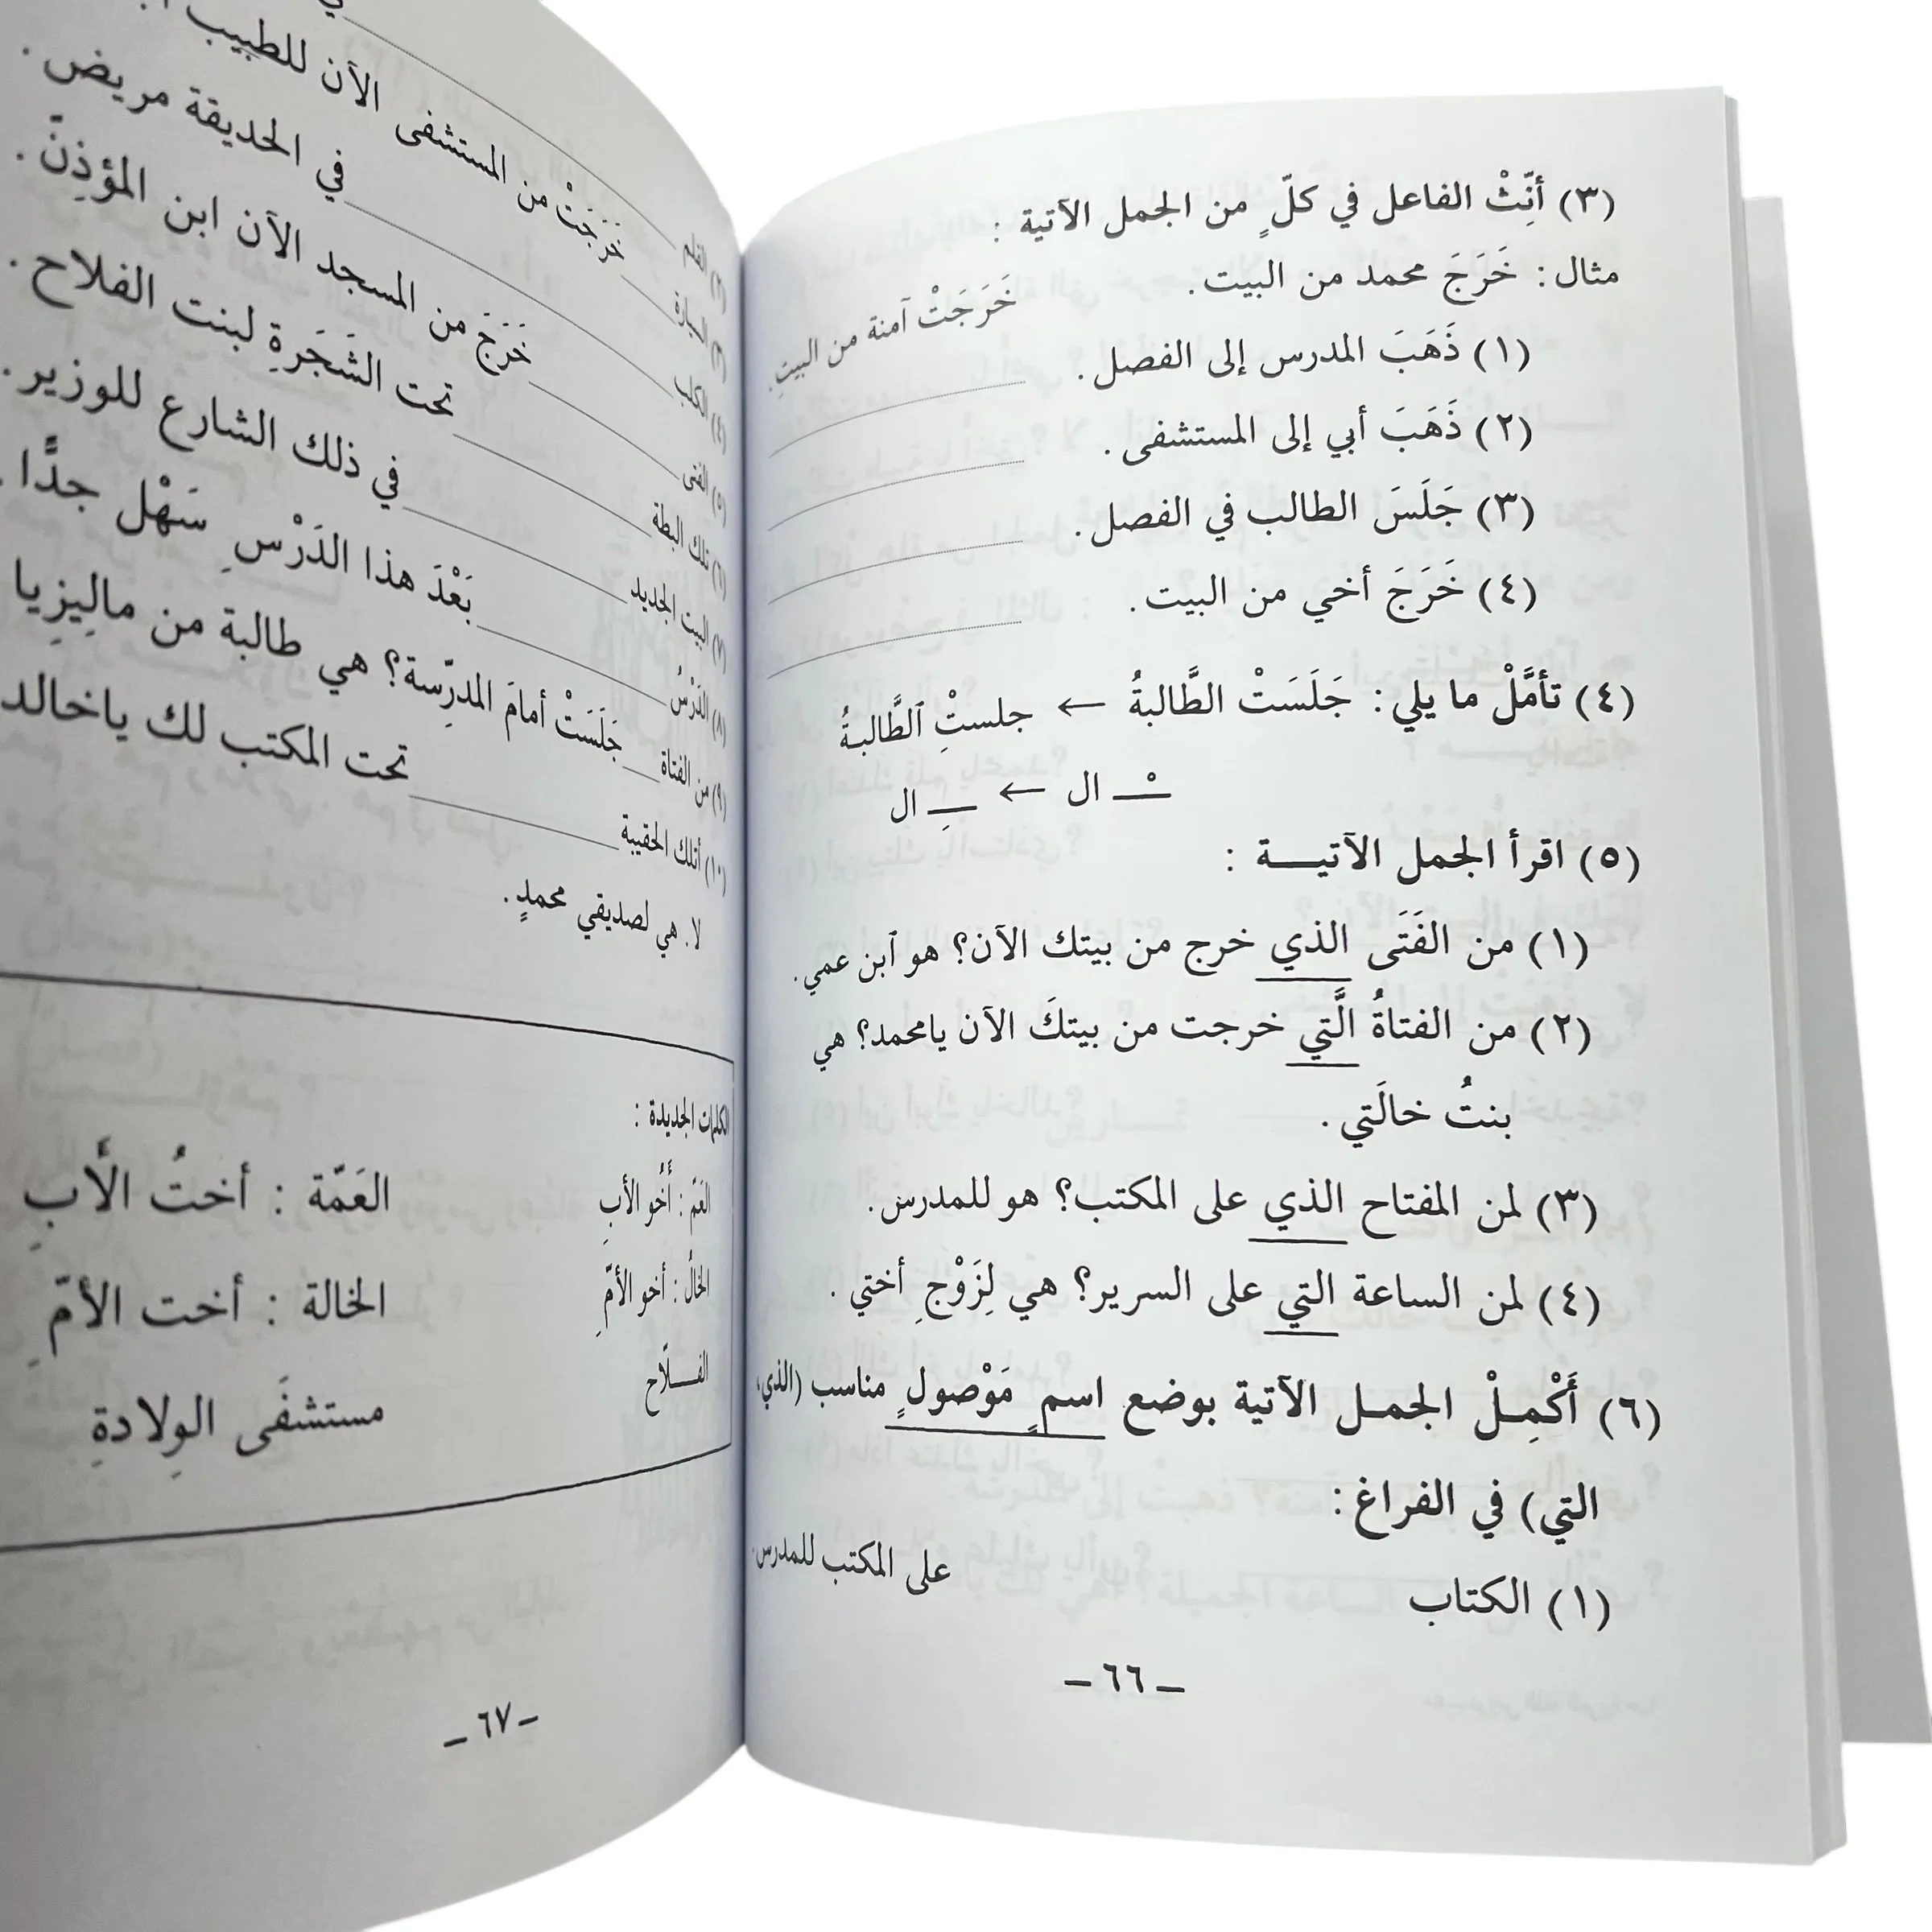 (٣) أَنِّثْ الفاعل في كلٍّ من الجمل الآتية :
مثال : خَرَجَ محمد من البيت. خَرَجَتْ آمنة من البيتِ.
(١) ذَهَبَ المدرس إلى الفصل.
(٢) ذَهَبَ أبي إلى المستشفى.
(٣) جَلَسَ الطالب في الفصل.
(٤) خَرَجَ أخي من البيت.
(٤) تأمَّلْ ما يلي : جَلَسَتْ الطَّالبةُ ← جلستِ ٱلطَّالبةُ
ـْ ال ← ـِ ال
(٥) اقرأ الجمل الآتيـــة :
(١) من الفَتَى الذي خرج من بيتك الآن؟ هو ٱبن عمي.
(٢) من الفتاةُ الَّتي خرجت من بيتكَ الآن يامحمد؟ هي
بنتُ خالَتي .
(٣) لمن المفتاح الذي على المكتب؟ هو للمدرس.
(٤) لمن الساعة التي على السرير؟ هي لِزَوْجِ أختي .
(٦) أَكْمِـلْ الجمـل الآتية بوضع اسمٍ مَوْصولٍ مناسب (الذي،
التي) في الفراغ :
(١) الكتاب على المكتب للمدرس.
– ٦٦ –
(٢) القلم
(٣) السيارة خَرَجَتْ من المستشفى الآن للطبيب
(٤) الكلب في الحديقة مريض .
(٥) الفتى خَرَجَ من المسجد الآن ابن المؤذِنّ .
(٦) تلك البطة تحت الشَجَرةِ لبنت الفلاح .
(٧) البيت الجديد في ذلك الشارع للوزير .
(٨) الدَرْسُ بَعْدَ هذا الدَرْسِ سَهْل جدًّا .
(٩) من الفتاة جَلَسَتْ أمامَ المدرّسة؟ هي طالبة من ماليزيا
(١٠) أتلك الحقيبة تحت المكتب لك ياخالد
لا. هي لصديقي محمدٍ.
الكلمات الجديدة :
العَمّ : أَخُو الأبِ العَمّة : أختُ الأَبِ
الخالُ : أخو الأمِّ الخالة : أخت الأمِّ
الفـــلّاح مستشفَى الوِلادةِ
– ٦٧ –